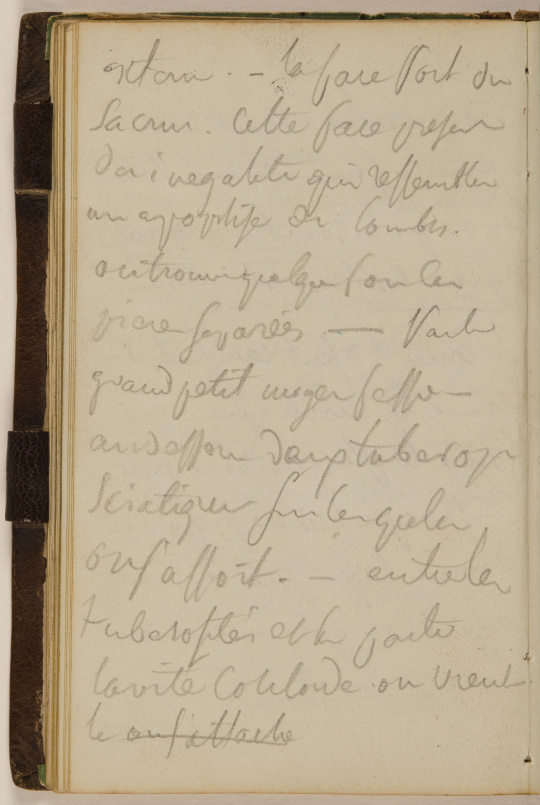 extern. - la face Post du
Sacrum. Cette face present
des inegalités qui ressemblen
aux apophise des lombes.
on trouve quelque fois les
pieces separées — Par le
grand petit moyen fesse —
au dessous deux tuberosi
Sciatiques sur lesquelles
on s'assoit. - entre les
tuberosités et la partie
cavité Cotiloide on vient
le on s'attache